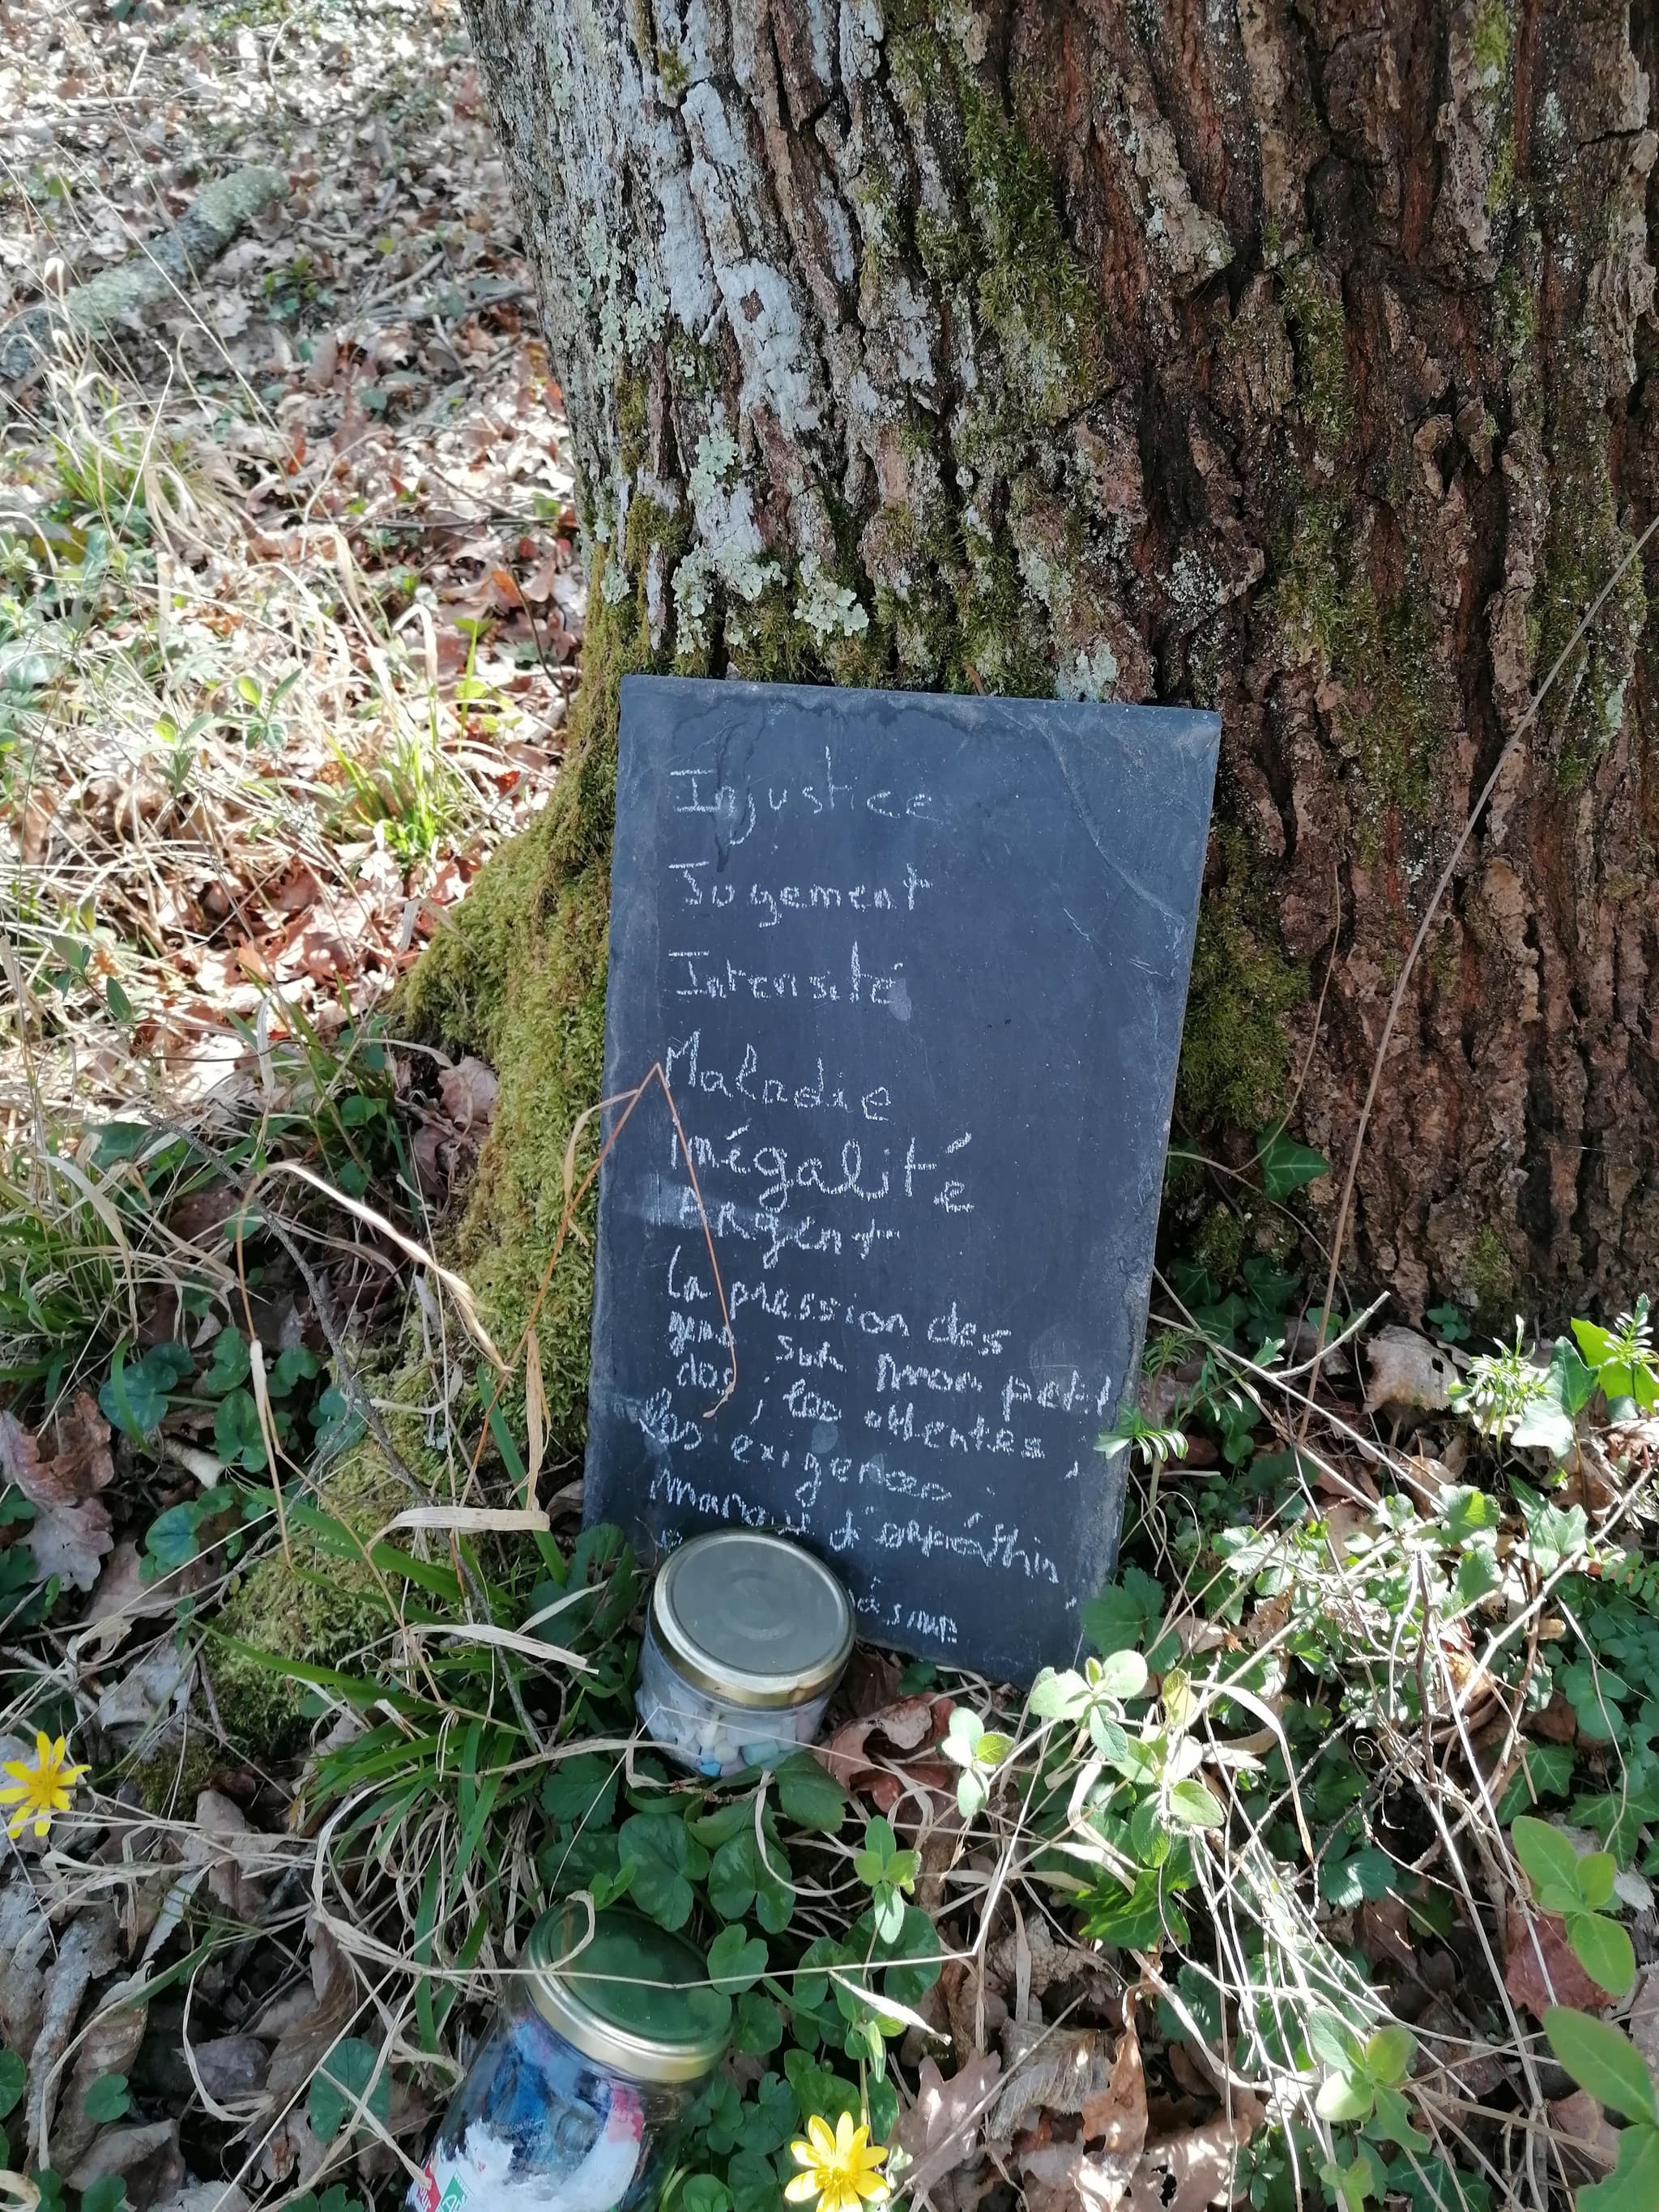 Injustice
Jugement
Intensité
Maladie
Inégalité
Argent
La pression des
gens sur mon petit
dos ; les attentes,
les exigences.
d'empathie